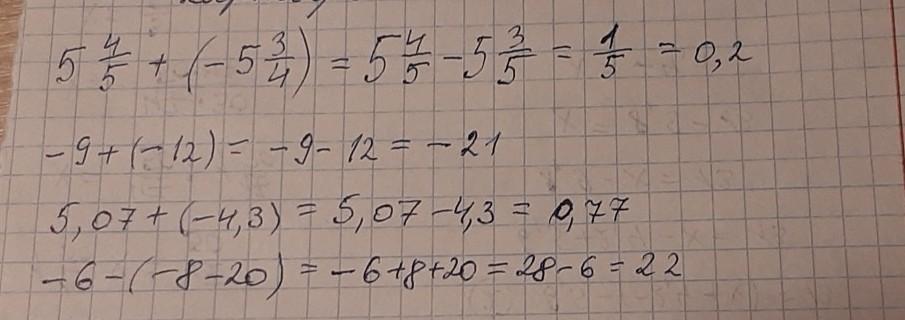 5 4/5 + (-5 3/4) = 5 4/5 - 5 3/5 = 1/5 = 0,2
-9 + (-12) = -9 - 12 = -21
5,07 + (-4,3) = 5,07 - 4,3 = 0,77
-6 - (-8 - 20) = -6 + 8 + 20 = 28 - 6 = 22